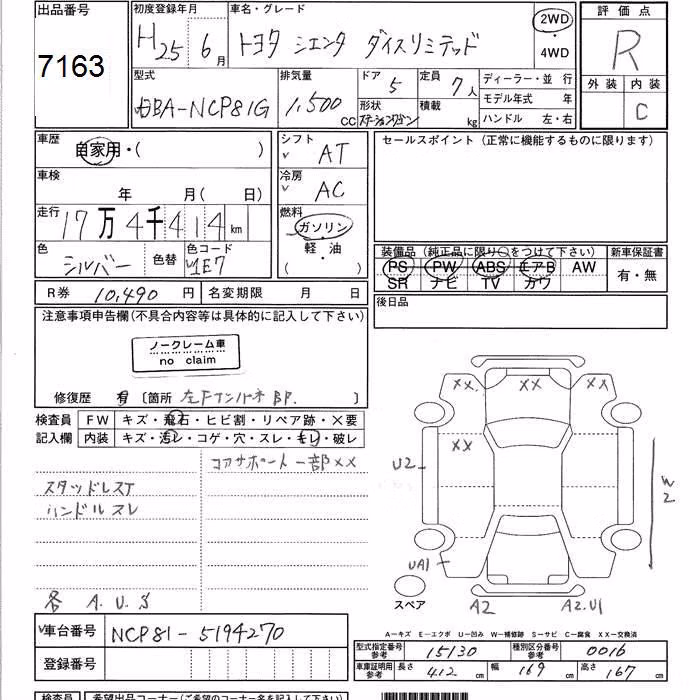 出品番号
7163
初度登録年月
H25 6月
車名・グレード
トヨタ シエンタ ダイスリミテッド
2WD
4WD
評価点
R
外装 内装
C
型式
DBA-NCP81G
排気量
1,500 CC
ドア 5
形状
ステーションワゴン
定員 7人
積載 kg
ディーラー・並行
モデル年式 年
ハンドル 左・右
車歴
自家用・( )
車検
年 月( 日)
走行
17万4千414km
色
シルバー
色替
色コード
1E7
シフト
AT
冷房
AC
燃料
ガソリン
軽・油
( )
セールスポイント (正常に機能するものに限ります)
装備品 (純正品に限り○をつけて下さい)
PS PW ABS エアB AW
SR ナビ TV カワ
新車保証書
有・無
後日品
R券 10,490円
名変期限 月 日
注意事項申告欄(不具合内容等は具体的に記入して下さい)
ノークレーム車
no claim
修復歴 有 〔箇所 左Fインパネ BP. 〕
検査員
記入欄
FW キズ・飛石・ヒビ割・リペア跡・×要
内装 キズ・汚レ・コゲ・穴・スレ・キレ・破レ
コアサポート一部××
スタッドレスT
ハンドルスレ
各 A.U.S
××. ×× ××.
××
U2
W2
UA1
スペア
A2 A2.U1
A-キズ E-エクボ U-凹み W-補修跡 S-サビ C-腐食 XX-交換済
車台番号 NCP81-5194270
登録番号
型式指定番号
参考
15130
種別区分番号
参考
0016
車庫証明用
参考
長さ 412 cm 幅 169 cm 高さ 167 cm
検査員 希望出品コーナー(ご希望のコーナー名を記入して下さい)